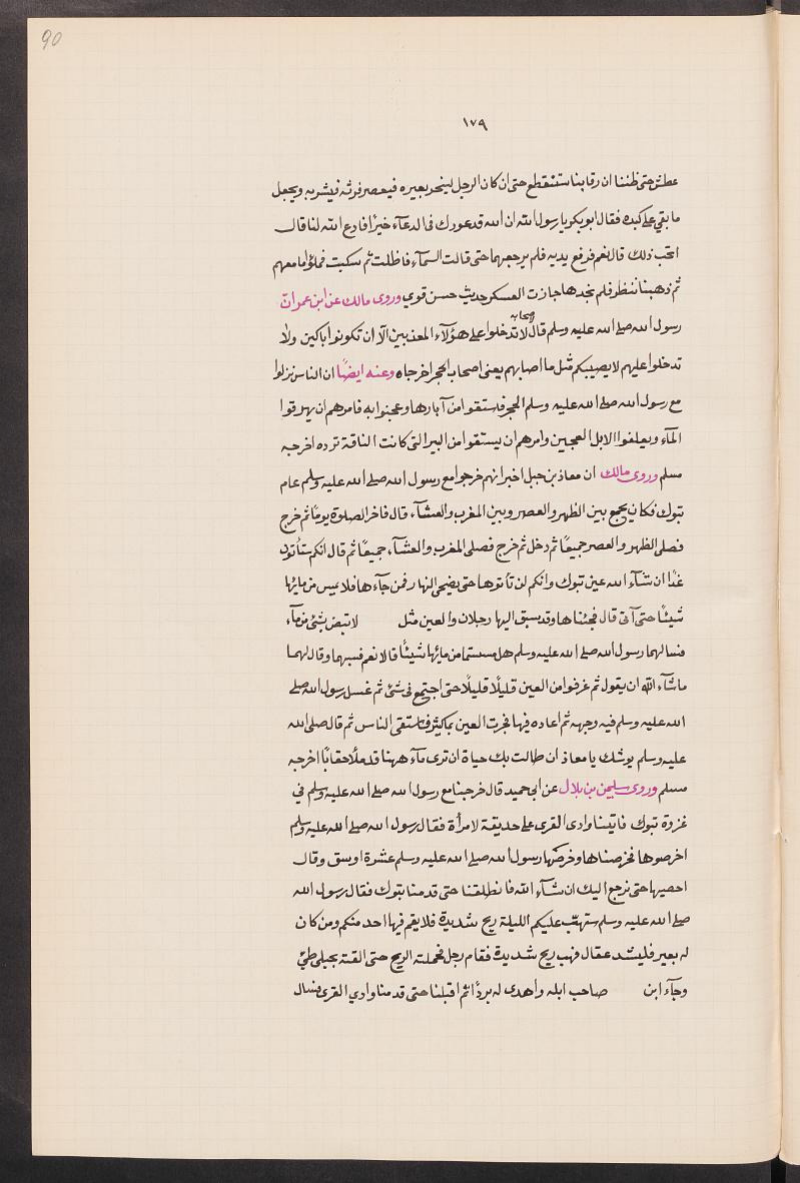 90
١٧٩
عطش حتى ظننا ان رقابنا ستنقطع حتى ان كان الرجل لينحر بعيره فيعصر فرثه فيشربه ويجعل
ما بقي على كبده فقال ابو بكر يا رسول الله ان الله قد عودك في الدعآء خيرًا فادع الله لنا قال
اتحب ذلك قال نعم فرفع يديه فلم يرجعهما حتى قالت السمآء فاظلت ثم سكبت فملؤا ما معهم
ثم ذهبنا ننظر فلم نجدها جازت العسكر حديث حسن قوي وروى مالك عن ابن عمر ان
رسول الله صلى الله عليه وسلم قال لا تدخلوا على هؤلآء المعذبين الا ان تكونوا باكين ولا
تدخلوا عليهم لا يصيبكم مثل ما اصابهم يعنى اصحاب الحجر اخرجاه وعنه ايضًا ان الناس نزلوا
مع رسول الله صلى الله عليه وسلم الحجر فاستقوا من آبارها وعجنوا به فامرهم ان يهرقوا
المآء ويعلفوا الابل العجين وامرهم ان يستقوا من البير التى كانت الناقة ترده اخرجه
مسلم وروى مالك ان معاذ بن جبل اخبر انهم خرجوا مع رسول الله صلى الله عليه وسلم عام
تبوك فكان يجمع بين الظهر والعصر وبين المغرب والعشآء قال فاخر الصلوة يومًا ثم خرج
فصلى الظهر والعصر جميعًا ثم دخل ثم خرج فصلى المغرب والعشآء جميعًا ثم قال انكم ستأتون
غدًا ان شآء الله عين تبوك وانكم لن تأتوها حتى يضحى النهار فمن جآءها فلا يمس من مائها
شيئًا حتى آتى قال فجئناها وقد سبق اليها رجلان والعين مثل لا تبض بشئ من مآء
فسالهما رسول الله صلى الله عليه وسلم هل مسستما من مائها شيئًا قالا نعم فسبهما وقال لهما
ما شآء الله ان يقول ثم غرفوا من العين قليلًا قليلًا حتى اجتمع فى شئ ثم غسل رسول الله صلى
الله عليه وسلم فيه وجهه ثم اعاده فيها فجرت العين بمآء كثير فاستقى الناس ثم قال صلى الله
عليه وسلم يوشك يا معاذ ان طالت بك حياة ان ترى مآء ههنا قد ملأ حقابًا اخرجه
مسلم وروى سليمن بن بلال عن ابى حميد قال خرجنا مع رسول الله صلى الله عليه وسلم في
غزوة تبوك فاتينا وادى القرى على حديقة لامرأة فقال رسول الله صلى الله عليه وسلم
اخرصوها فخرصناها وخرصها رسول الله صلى الله عليه وسلم عشرة اوسق وقال
احصيها حتى نرجع اليك ان شآء الله فانطلقنا حتى قدمنا تبوك فقال رسول الله
صلى الله عليه وسلم ستهب عليكم الليلة ريح شديدة فلا يقم فيها احد منكم ومن كان
له بعير فليشد عقال فهب ريح شديدة فقام رجل فحملته الريح حتى القته بجبلى طئ
وجآء ابن صاحب ايله واهدى له بردًا ثم اقبلنا حتى قدمنا وادي القرى فسال